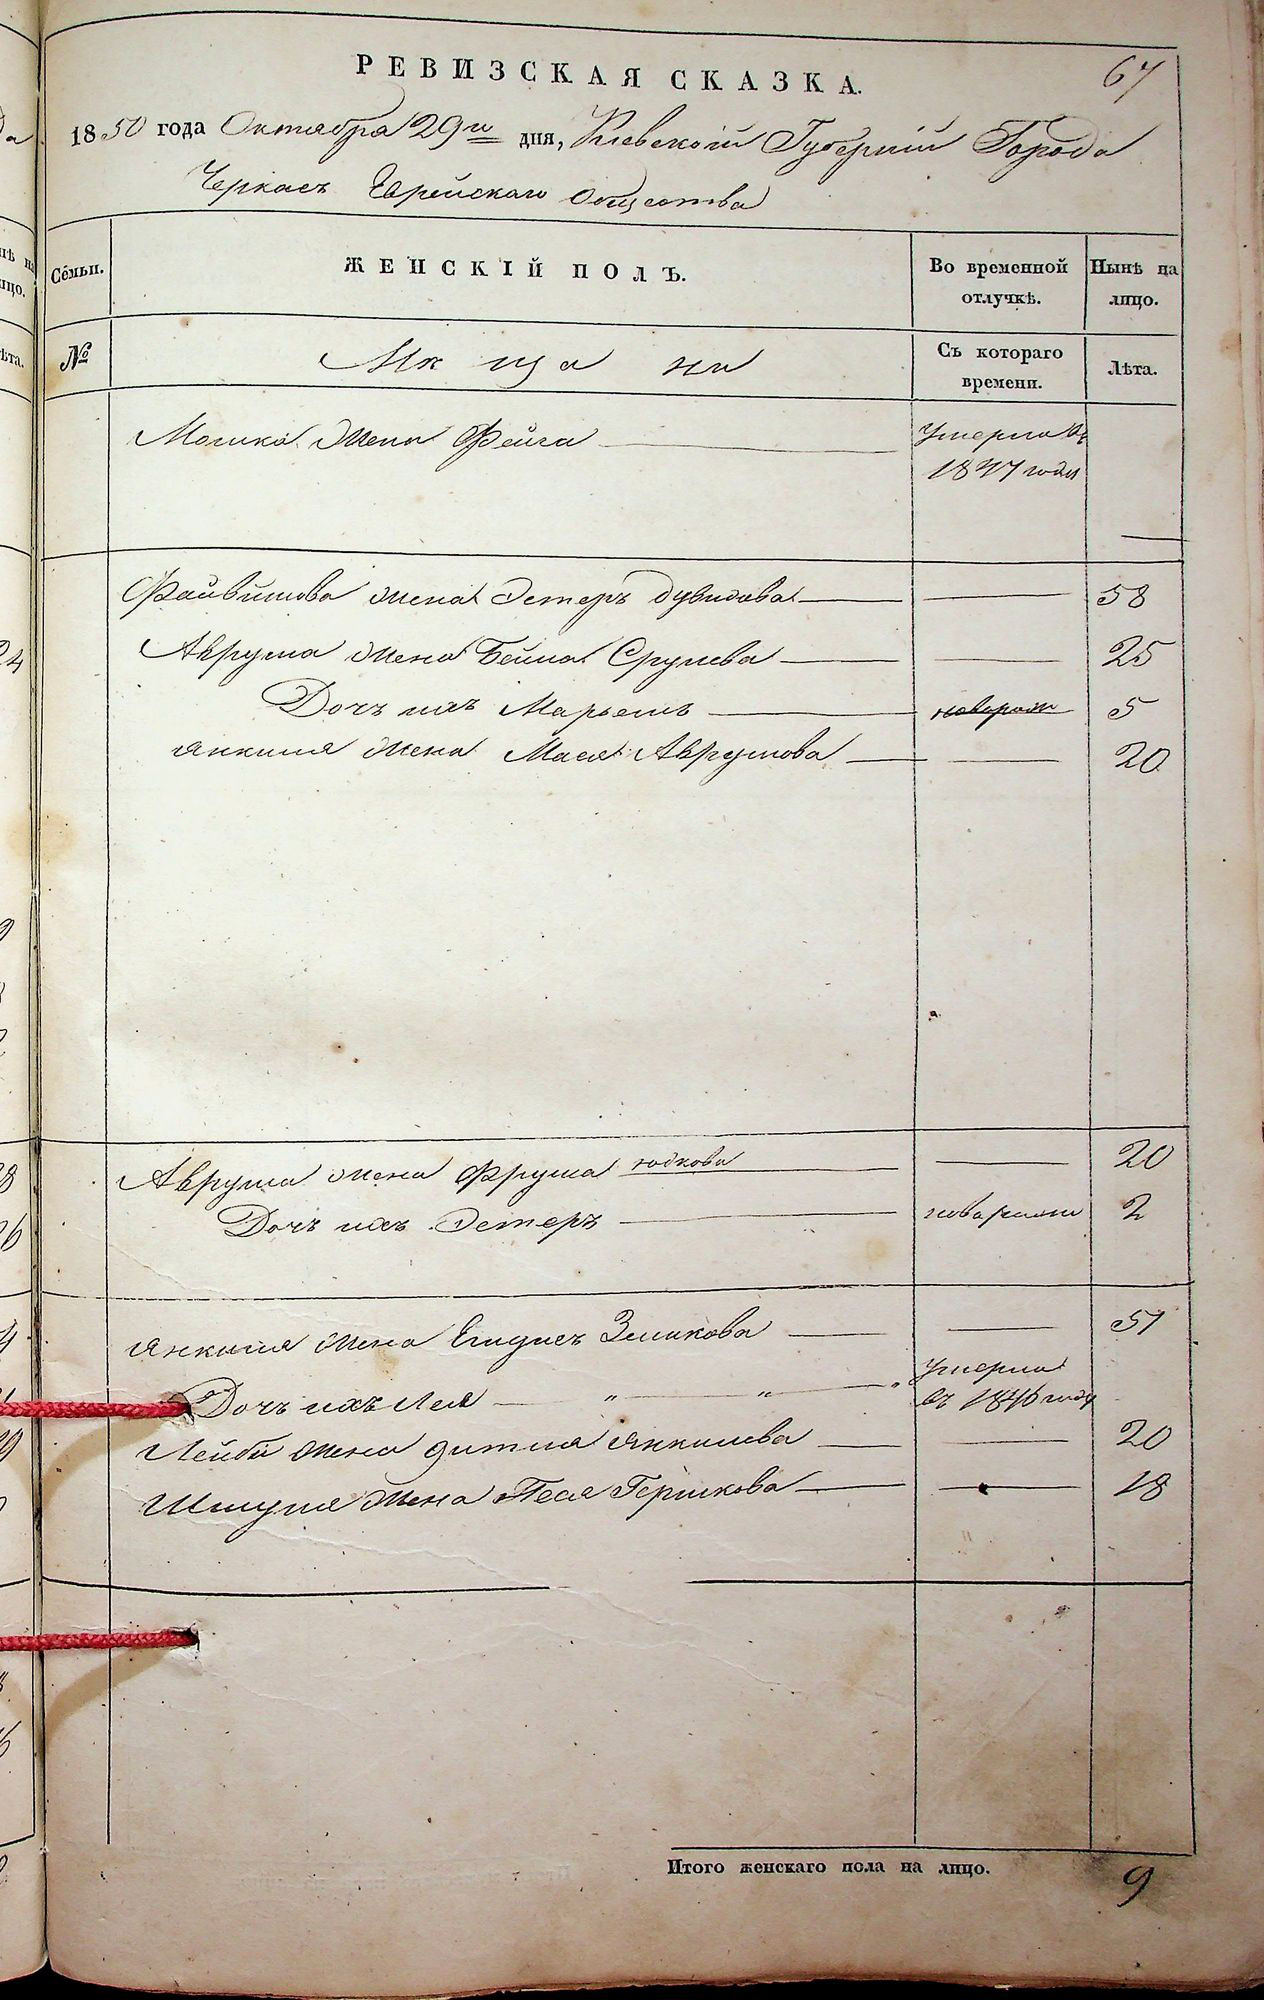 67
РЕВИЗСКАЯ СКАЗКА.
1850 года Октября 29го дня, Киевской Губерніи Города
Черкасъ Еврейскаго Общества
Семьи. ЖЕНСКІЙ ПОЛЪ. Во временной отлучкѣ. Нынѣ на лицо.
№ Мѣщане Съ котораго времени. Лѣта.
Мошка жена Фейга Умерла въ
1847 года
Файвишова жена Эстеръ Дувидова 58
Аврума жена Бейла Срулева 25
Дочь ихъ Марьемъ новорож 5
Янкеля жена Мася Аврумова 20
Аврума жена Фрума Юдкова 20
Дочь ихъ Эстеръ новорожн 2
Янкеля жена Зельманова 51
Дочь ихъ Лея " " " Умерла
въ 1846 году
Лейбы жена Янкелева 20
Шмуля жена Песя Гершкова 18
Итого женскаго пола на лицо. 9